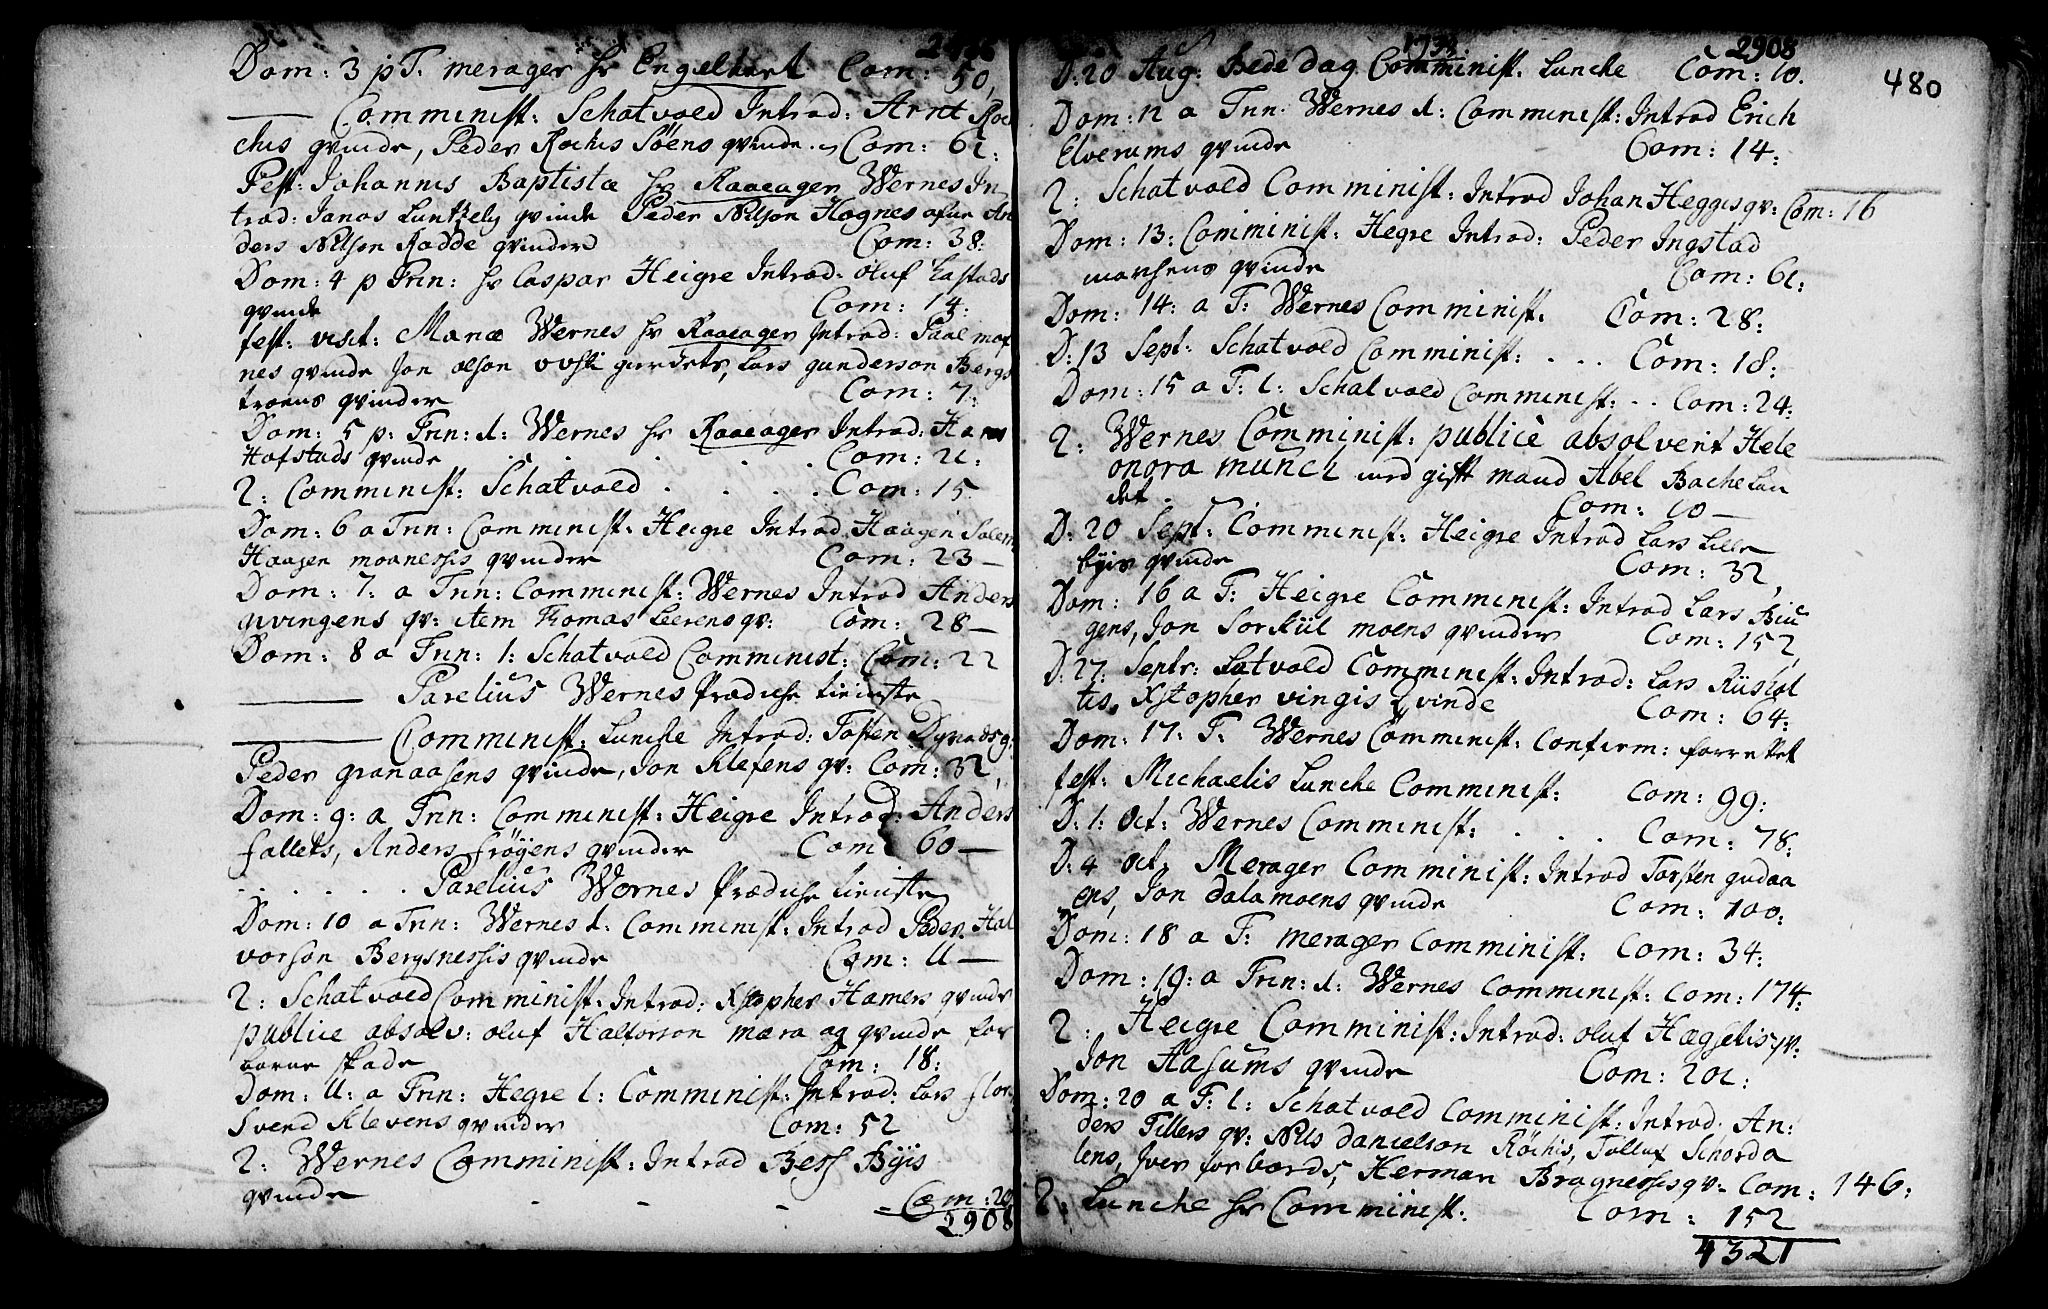 Dom: 3 p T. merager hr Engelbert Com: 50,
Comminist: Schatvold Introd: Arnt Roc
chis qvinde, Peder Rochis Söens qvinde. Com: 61:
Fest: Johannis Baptistæ hr Raaeager Wernes In
trod: Janos Luntzely qvinde Peder Nilson Hognes An
ders Nilson Rodde qvinder Com: 38:
Dom: 4 p Trin: hr Caspar Heigre Introd: oluf
qvinde Com: 14:
fest: visit: Mariæ Wernes hr Raaeager Introd: Paal mof
nes qvinde Jon olson Lars gunderson Bergs
troens qvinder Com: 7:
Dom: 5 p: Trin: d: Wernes hr Raaeager Introd: Hans
Hofstads qvinde . . . . . Com: 21:
2: Comminist: Schatvold . . . . Com: 15
Dom: 6 a Trin: Comminist: Heigre Introd Haagen Salem
Haagen moenessis qvinder Com: 23 —
Dom: 7: a Trin: Comminist: Wernes Introd Anders
qvingens qv: item Thomas Leerens qv: Com: 28 —
Dom: 8 a Trin: 1: Schatvold Comminist: Com: 22
Parelius Wernes Prædiche tieniste
Comminist: Lunche Introd: Tosten Dyvads q:
Peder granaasens qvinde, Jon Klefens qv: Com: 32,
Dom: 9: a Trin: Comminist: Heigre Introd: Anders
fallets, Anders frøyens qvinder Com: 60 —
. . . . . . Parelius Wernes Prædiche tieniste
Dom: 10 a Trin: Wernes d: Comminist: Introd Peder Hal
vorson Bergsnessis qvinde Com: 11 —
2: Schatvold Comminist: Introd: Xstopher Hamers qvinde
publice absolv: oluf Halforson mæra og qvinde for
barne skade Com: 18:
Dom: 11: a Trin: Hegre 1: Comminist: Introd: Lars flor
Svend Klevens qvinder Com: 52
2: Wernes Comminist: Introd Bersf Byis
qvinde - - - Com: 20
2908
2908
D: 20 Aug: Bede dag Comminist: Lunche Com: 10.
480
Dom: 12 a Trin: Wernes d: Comminist: Introd Erich
Elverums qvinde Com: 14:
2: Schatvold Comminist: Introd Johan Heggis qv: Com: 16
Dom: 13: Comminist: Hegre Introd: Peder Ingstad
qvinde Com: 61:
Dom: 14: a T: Wernes Comminist. Com: 28:
D: 13 Sept: Schatvold Comminist: . . . Com: 18:
Dom: 15 a T: 1: Schatvold Comminist: . . Com: 24:
2: Wernes Comminist: publicè absolverit Hele
onora munch med gift mand Abel Bache Lan
det. Com: 10 —
D: 20 Sept: Comminist: Heigre Introd Lars Lille
byis qvinde Com: 32,
Dom: 16 a T: Heigre Comminist: Introd Lars Biu
gens, Jon Torkiil moens qvinder Com: 152,
D: 27: Septr: Latvold Comminist: Introd: Lars Riishol
tis, Xstopher vingis qvinde Com: 64:
Dom: 17: T: Wernes Comminist: Confirm: forrettet
fest: Michaelis Lunche Comminist: Com: 99:
D: 1: Oct: Wernes Comminist: . . . Com: 78:
D: 4 Oct: Merager Comminist: Introd Torsten gudaa
ens, Jon Dalamoens qvinde Com: 100:
Dom: 18 a T: merager Comminist: Com: 34:
Dom: 19: a Trin: d: Wernes Comminist: Com: 174:
2: Heigre Comminist: Introd: oluf Hægsetis qv:
Jon Aasums qvinde Com: 201:
Dom: 20 a T: 1: Schatvold Comminist: Introd: An:
ders Tillers qv: Nils Danielson Röchis, Tolluf Schorda
lens, Iver forbords, Herman Bragnessis qv: Com: 146:
2: Lunche hr Comminist: Com: 152
4321